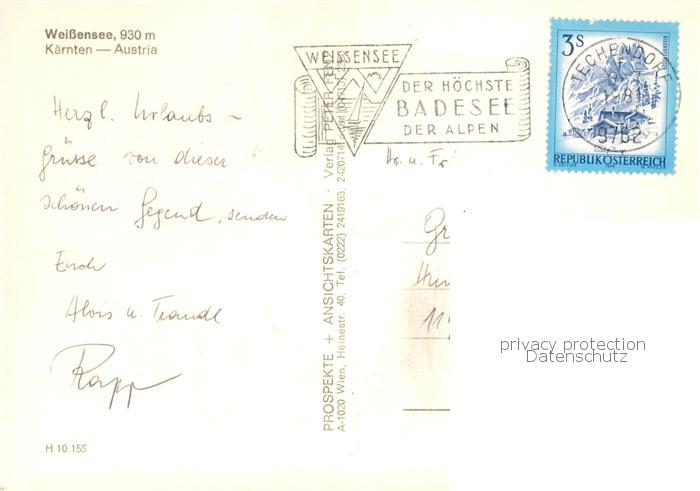 Weißensee, 930 m
Kärnten — Austria
WEISSENSEE
DER HÖCHSTE
BADESEE
DER ALPEN
3S
TECHENDORF
9762
REPUBLIK ÖSTERREICH
Herzl. Urlaubs-
grüsse von dieser
schönen Gegend, senden
Euch
Alois u. Traudl
Rapp
Hr. u. Fr.
PROSPEKTE + ANSICHTSKARTEN · Verlag PETER
A-1020 Wien, Heinestr. 40, Tel. (0222) 2419163, 2420714
privacy protection
Datenschutz
H 10.155